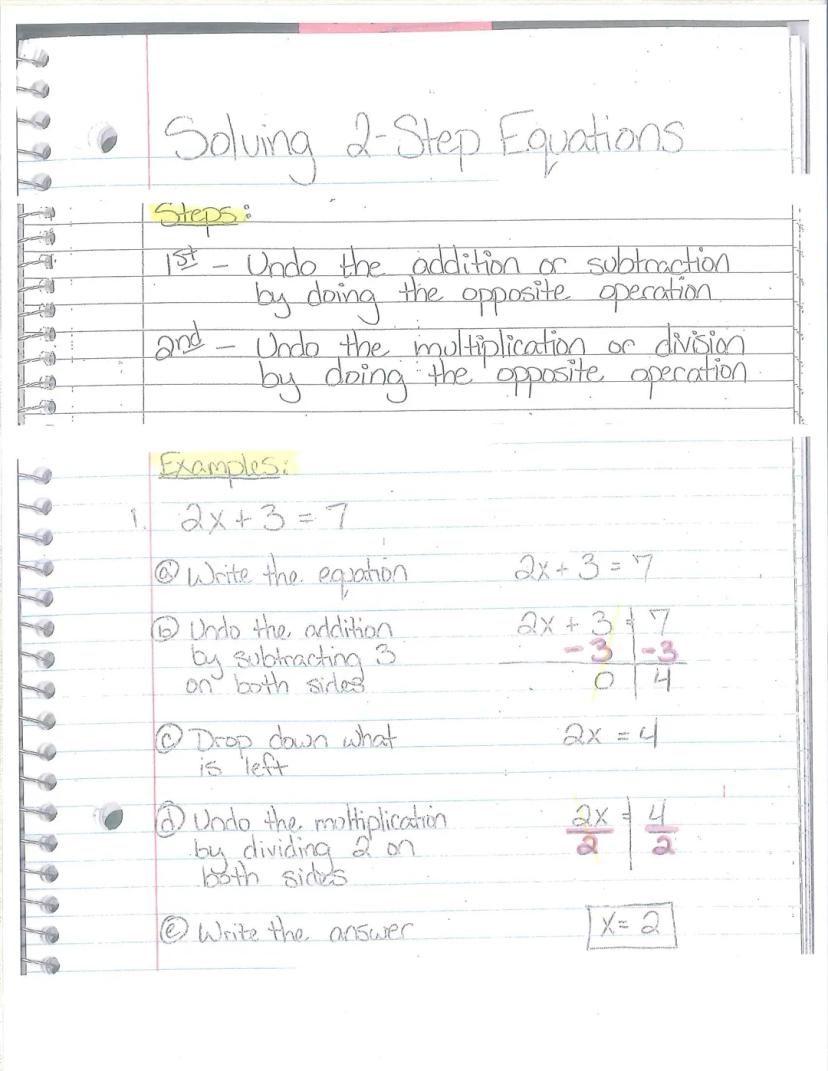 Solving 2-Step Equations
Steps:
1st - Undo the addition or subtraction
by doing the opposite operation
2nd - Undo the multiplication or division
by doing the opposite operation
Examples:
1. 2x + 3 = 7
ⓐ Write the equation 2x + 3 = 7
ⓑ Undo the addition 2x + 3 = 7
by subtracting 3 -3 -3
on both sides 0 4
ⓒ Drop down what 2x = 4
is left
ⓓ Undo the multiplication 2x = 4
by dividing 2 on 2 2
both sides
ⓔ Write the answer x = 2